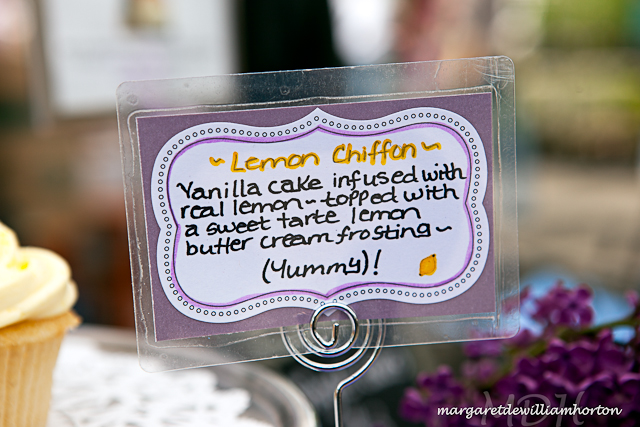 ~ Lemon Chiffon ~
Vanilla cake infused with
real lemon~topped with
a sweet tarte lemon
butter cream frosting~
(Yummy)!
MDH
margaretdewilliamhorton